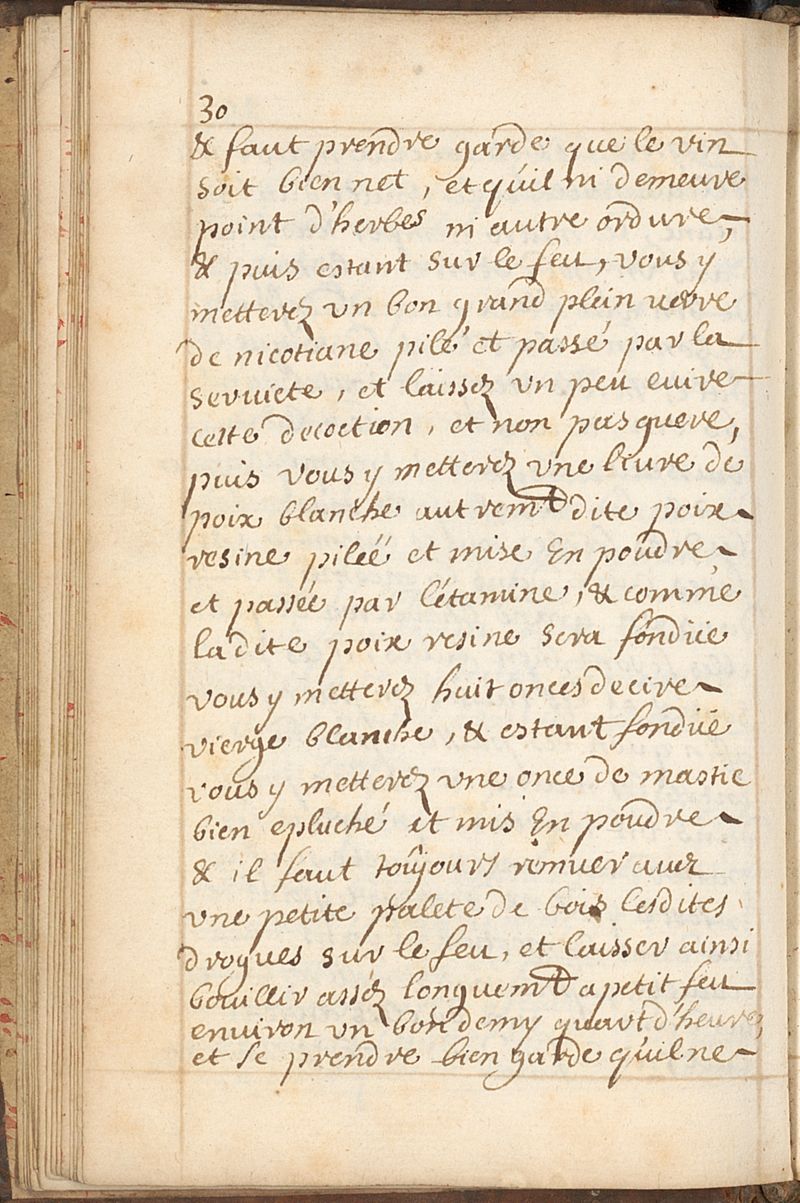 30
& faut prendre garde que le vin
soit bien net, et quil ni demeure
point d'herbes ni autre ordure,
& puis estant sur le feu, vous y
metterez un bon grand plein verre
de nicotiane pilé et passé par la
serviete, et laissez un peu cuire
cette decoction, et non pas guere,
puis vous y metterez une livre de
poix blanche autremt dite poix
resine pileé et mise En poudre
et passée par l'étamine, & comme
la dite poix resine sera fondüe
vous y metterez huit onces de cire
vierge blanche, & estant fondüe
vous y metterez une once de mastic
bien epluché et mis En poudre
& il faut toûjours remuer avec
une petite palete de bois lesdites
drogues sur le feu, et laisser ainsi
boüillir assez longuemt a petit feu
environ un bon demy quart d'heure,
et se prendre bien garde quil ne